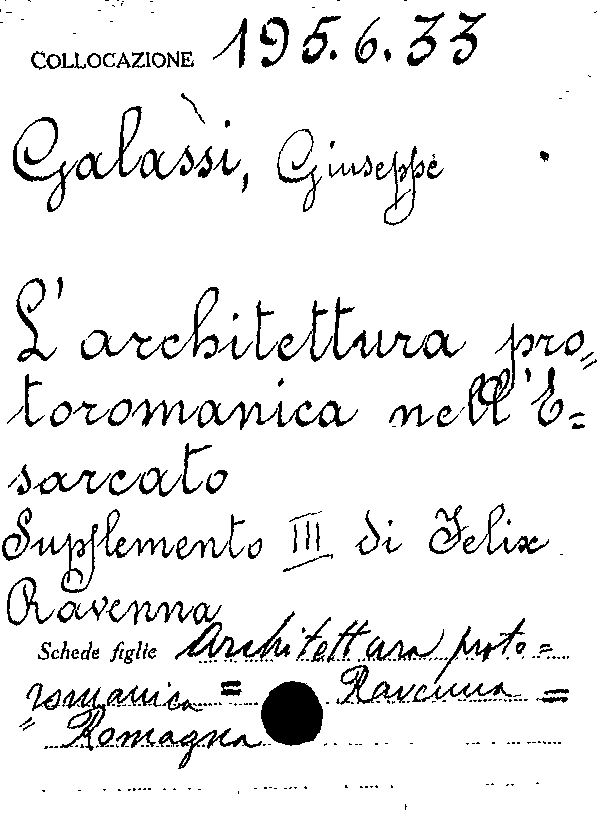 COLLOCAZIONE 195.6.33
Galassi, Giuseppe
L'architettura pro=
toromanica nell'E=
sarcato
Supplemento III di Felix
Ravenna
Schede figlie Architettura proto=
romanica = Ravenna =
= Romagna